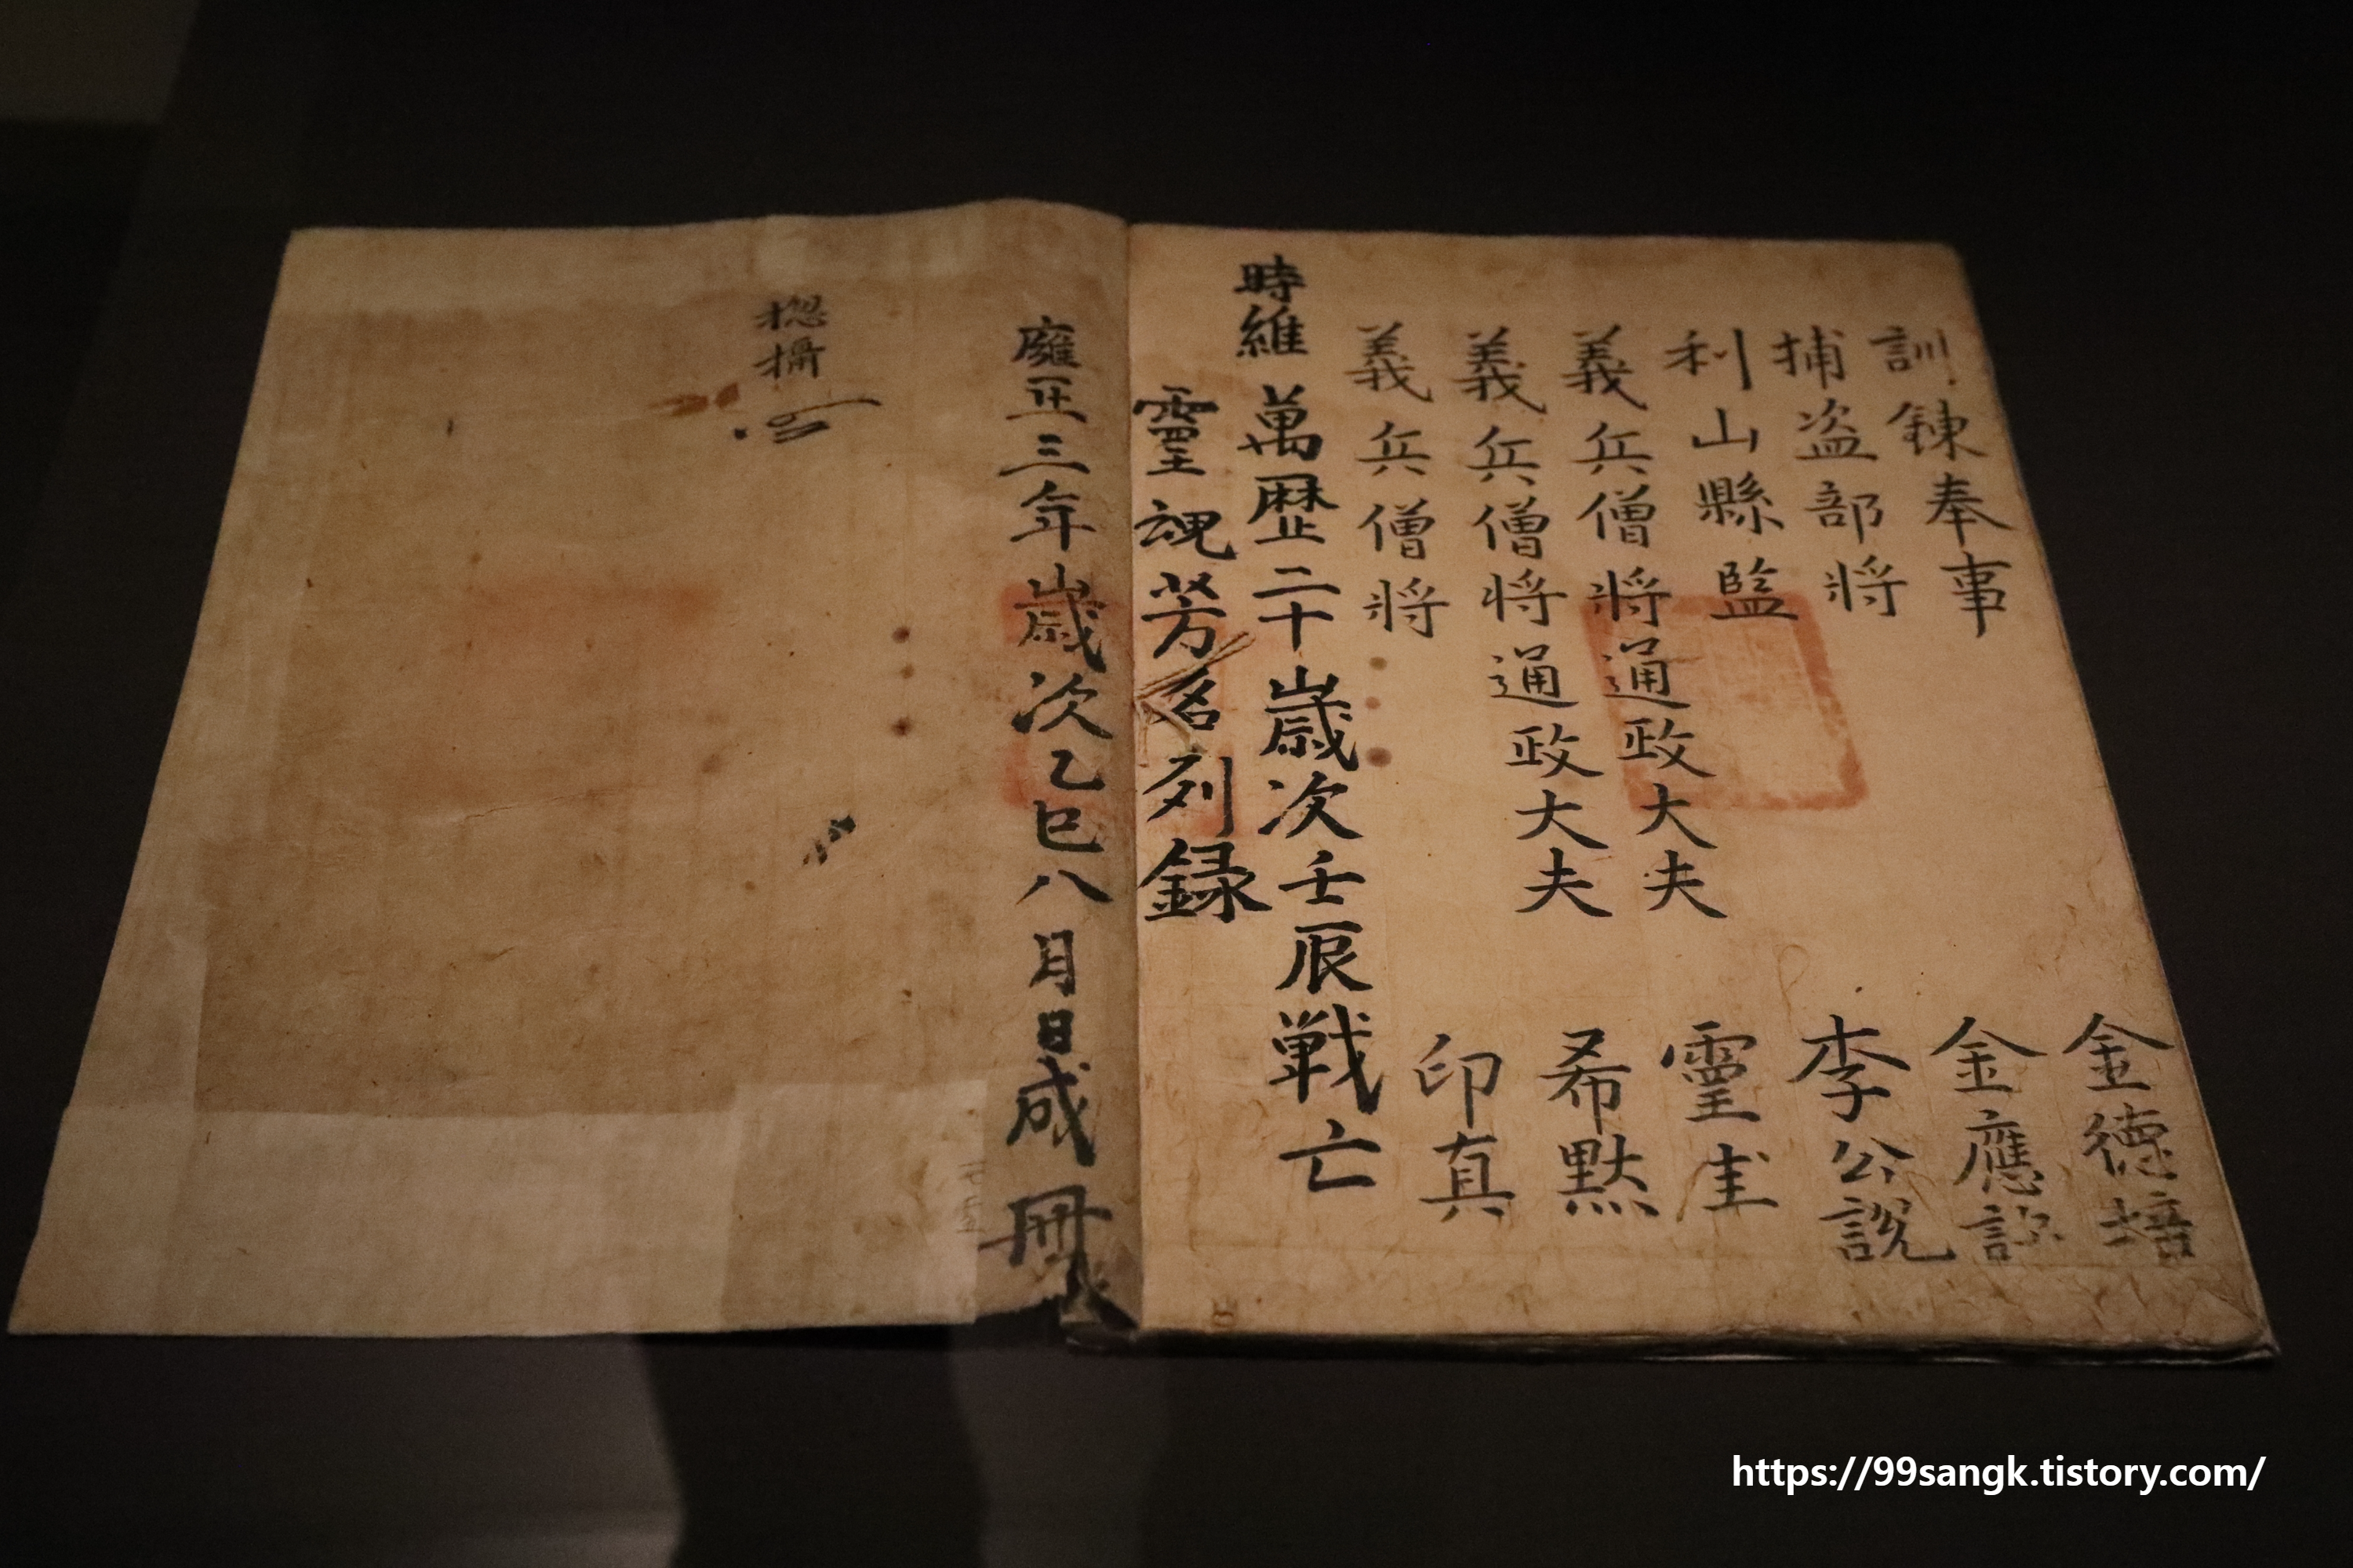 訓鍊奉事 金德培
捕盗部將 金應
利山縣監 李公說
義兵僧將通政大夫 靈圭
義兵僧將通政大夫 希默
義兵僧將 印真
時維萬歷二十歲次壬辰戰亡
靈魂芳名列録
廱正三年歲次乙巳八月日成冊
摠攝
https://99sangk.tistory.com/